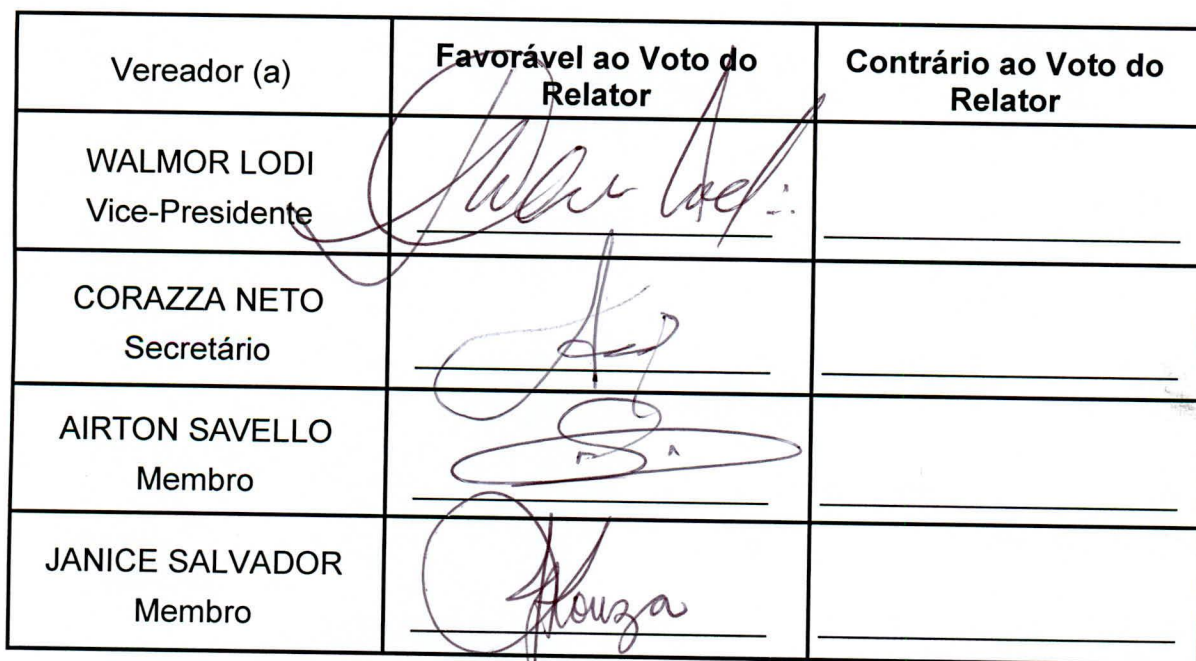 Vereador (a)
Favorável ao Voto do
Relator
Contrário ao Voto do
Relator
WALMOR LODI
Vice-Presidente
CORAZZA NETO
Secretário
AIRTON SAVELLO
Membro
JANICE SALVADOR
Membro